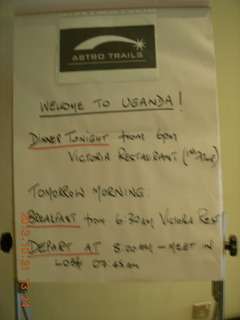 ASTRO TRAILS
WELCOME TO UGANDA!
DINNER TONIGHT from 6pm
VICTORIA RESTAURANT (1st Floor)
TOMORROW MORNING:
BREAKFAST from 6:30am VICTORIA REST
DEPART AT 8:00AM - MEET IN
LOBBY 07.45am